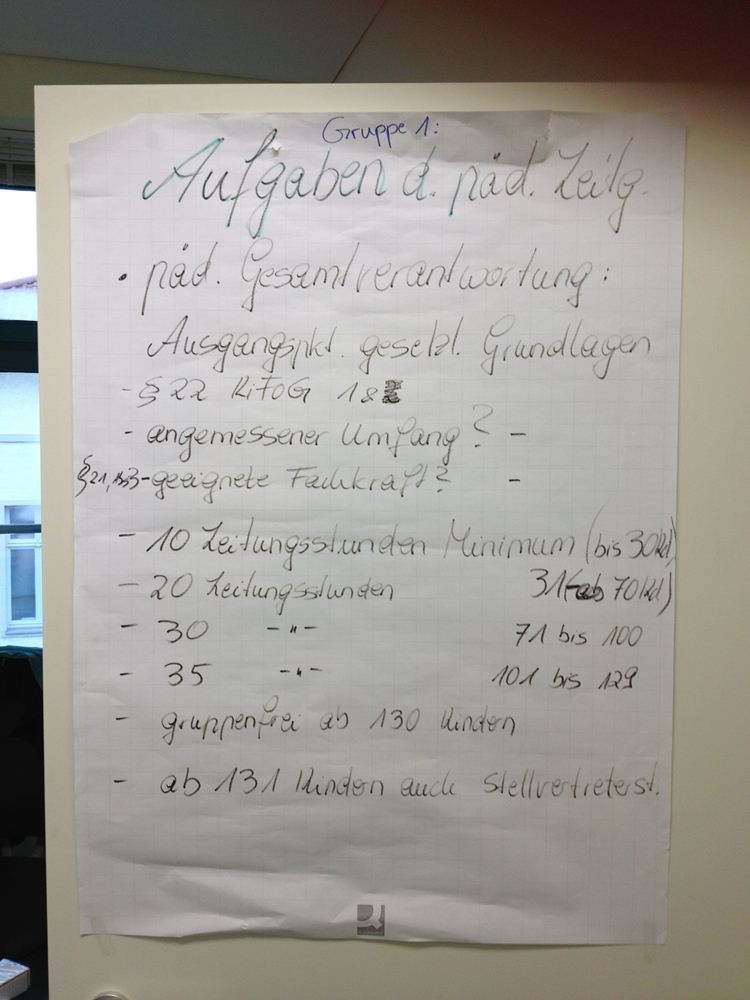 Gruppe 1:
Aufgaben d. päd. Leitg.
• päd. Gesamtverantwortung:
Ausgangspkt. gesetzl. Grundlagen
- § 22 KiFöG 1 &
- angemessener Umfang? -
§ 21, - geeignete Fachkraft? -
- 10 Leitungsstunden Minimum (bis 30 Kd)
- 20 Leitungsstunden 31 (ab 70 Kd)
- 30 -"- 71 bis 100
- 35 -"- 101 bis 129
- gruppenfrei ab 130 Kindern
- ab 131 Kindern auch Stellvertreterst.